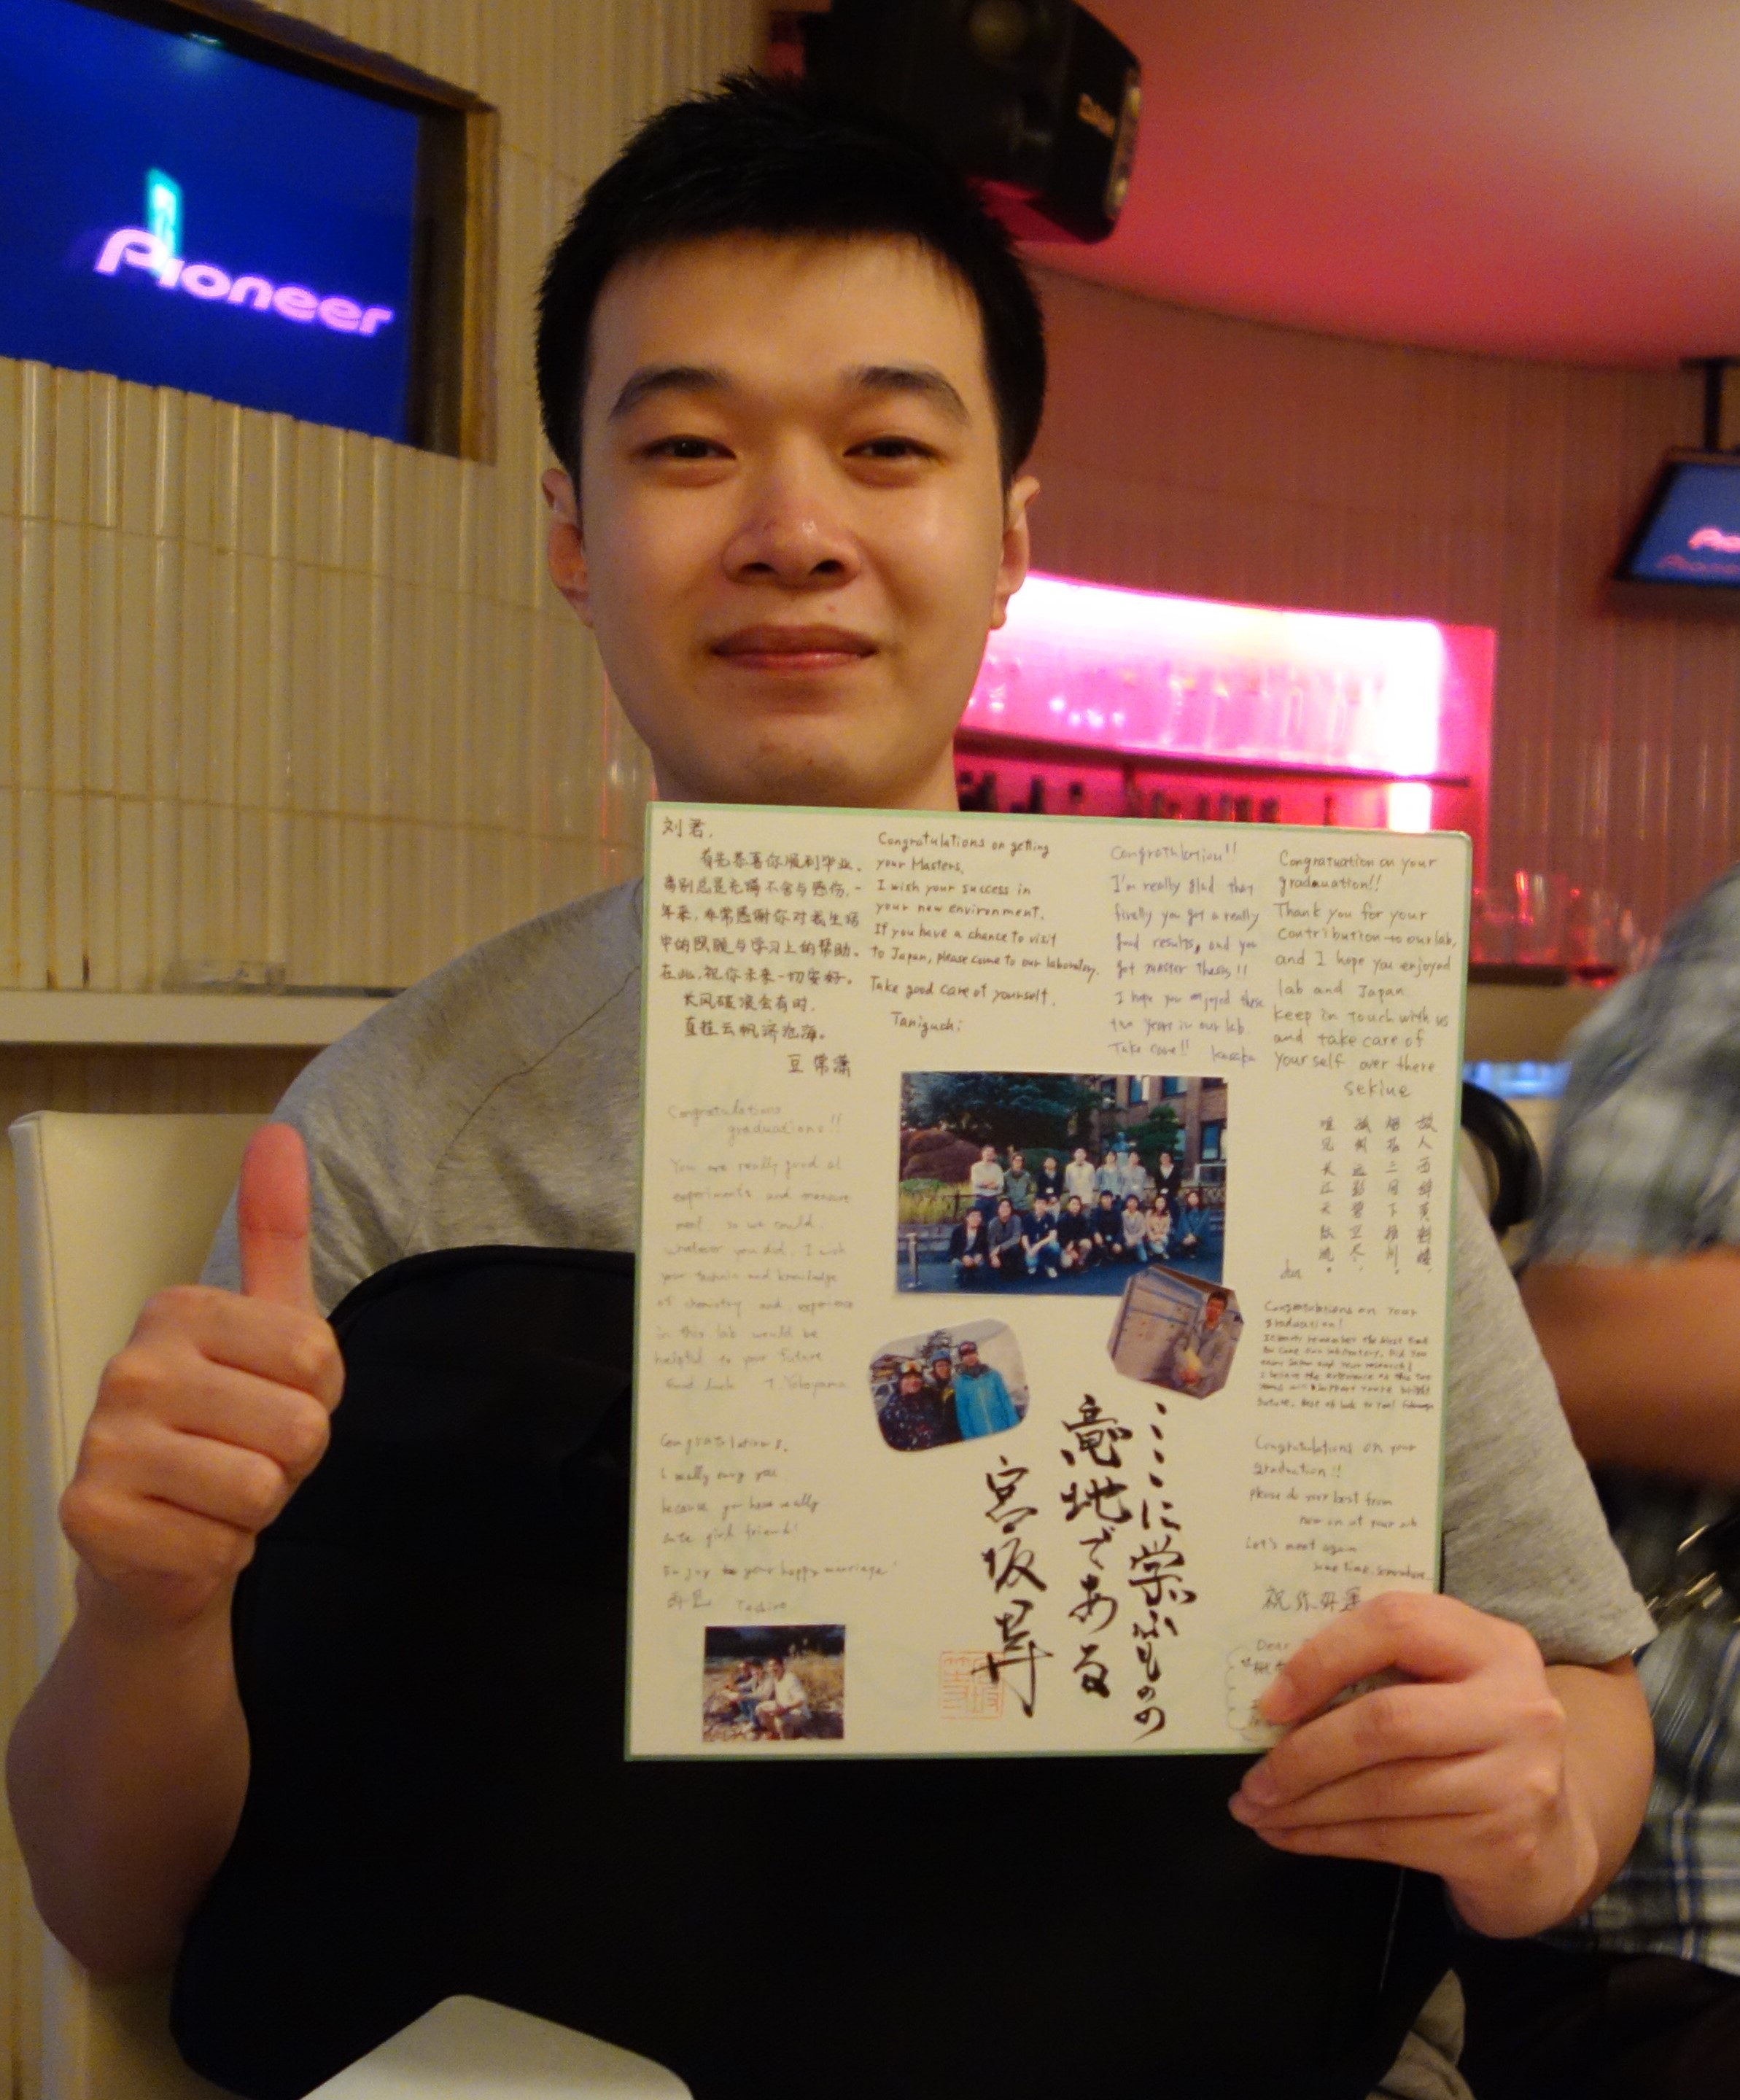 Pioneer
刘君,
首先恭喜你顺利毕业.
离别总是充满不舍与感伤.一
年来,非常感谢你对我生活
中的照顾与学习上的帮助.
在此,祝你未来一切安好.
长风破浪会有时,
直挂云帆济沧海.
豆常潇
Congratulations on getting
your Masters.
I wish your success in
your new environment.
If you have a chance to visit
to Japan, please come to our laboratory.
Take good care of yourself.
Taniguchi
I'm really glad that
finally you got a really
good results, and you
got master thesis!!
I hope you enjoyed these
two years in our lab.
Take care!!
Congratuation on your
graduation!!
Thank you for your
contribution to our lab,
and I hope you enjoyed
lab and Japan.
keep in touch with us
and take care of
yourself over there
Sekine
故人西辞黄鹤楼,
烟花三月下扬州.
孤帆远影碧空尽,
唯见长江天际流.
Congratulations
graduations!!
You are really good at
experiments and measure
ment. so we could
whatever you did. I wish
your and knowledge
of chemistry and experience
in this lab would be
helpful to your future
Good luck T. Yokoyama
Congratulations on your
graduation!
Congratulations.
I really envy you
because you have really
cute girl friend!
Enjoy your happy marriage!
Congratulations on your
graduation!!
please do your best from
now on at your
Let's meet again
some time, somewhere.
祝你好運
ここに学ぶものの
意地である
宮坂
Dear